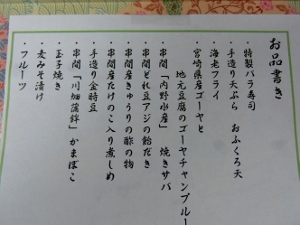 お品書き
・特製バラ寿司
・手造り天ぷら　おふくろ天
・海老フライ
・宮崎県産ゴーヤと
地元豆腐のゴーヤチャンプルー
・串間「内野水産」　焼きサバ
・串間どれ豆アジの飴だき
・串間産きゅうりの酢の物
・串間産たけのこ入り煮しめ
・手造り金時豆
・串間「川畑蒲鉾」かまぼこ
・玉子焼き
・麦みそ漬け
・フルーツ